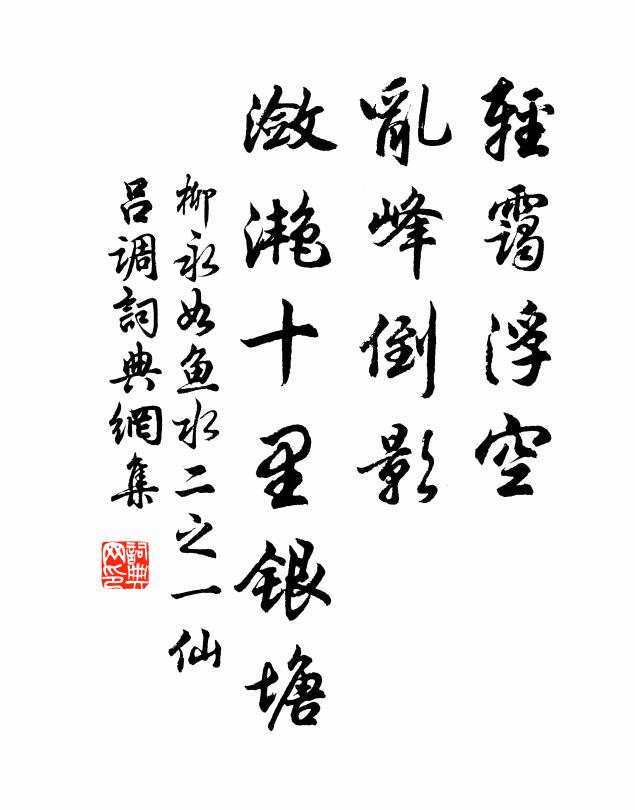 輕靄浮空
亂峰倒影
瀲灧十里銀塘
柳永如鱼水二之一仙
吕调詞典網集
詞典
网印